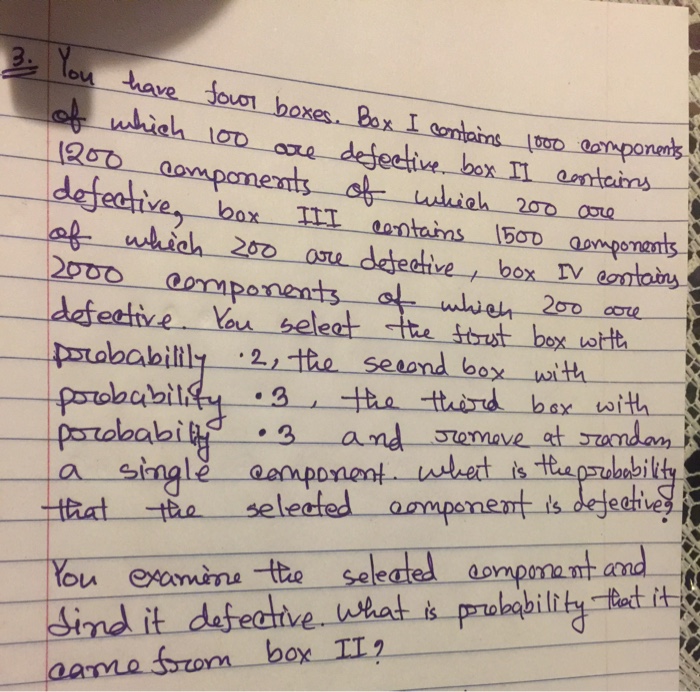 3. You have four boxes. Box I contains 1000 components
of which 100 are defective. box II contains
1200 components of which 200 are
defective, box III contains 1500 components
of which 200 are defective, box IV contains
2000 components of which 200 are
defective. You select the first box with
probabilily .2, the second box with
probability .3, the third box with
probabiliy .3 and remove at random
a single component. What is the probability
that the selected component is defective?
You examine the selected component and
find it defective. What is probability that it
came from box II?